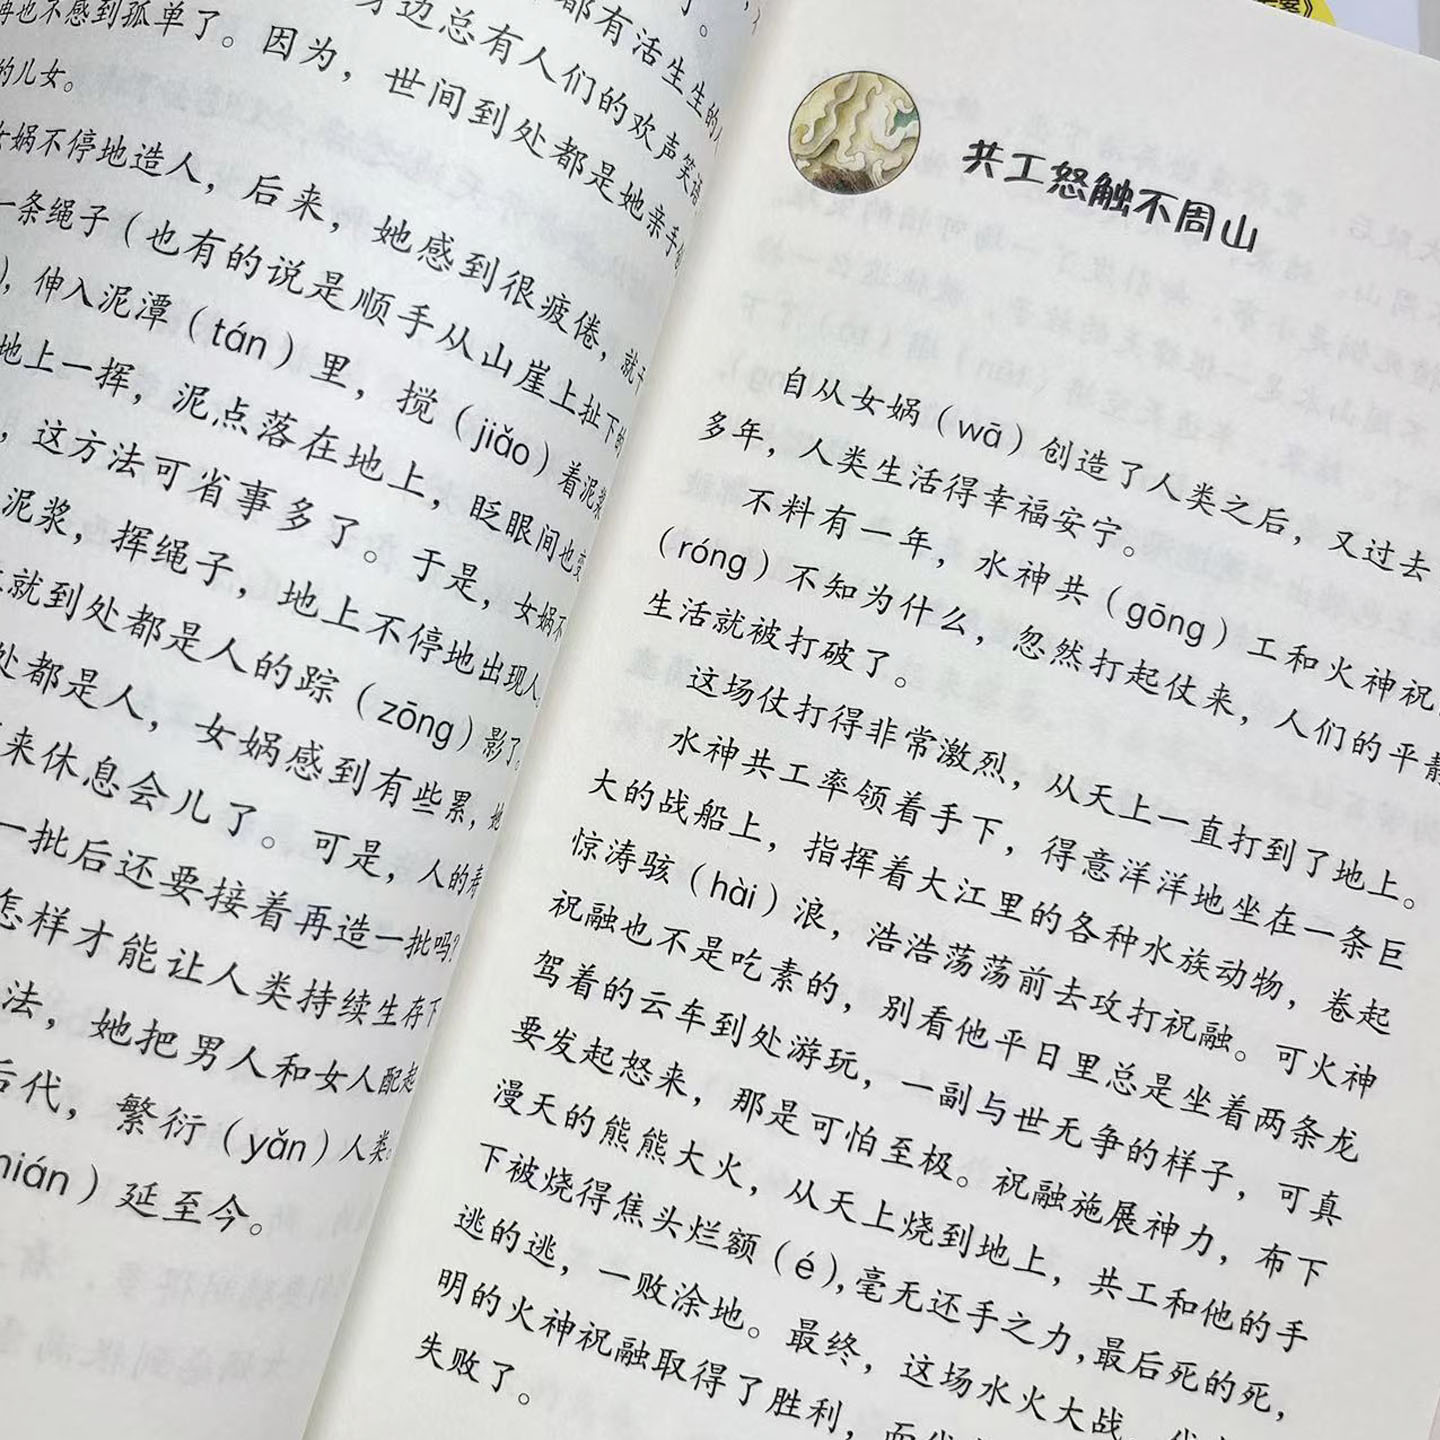 都有活生生的
身边总有人们的欢声笑语
再也不感到孤单了。因为，世间到处都是她亲手
的儿女。
女娲不停地造人，后来，她感到很疲倦，就
一条绳子（也有的说是顺手从山崖上扯下的
），伸入泥潭（tán）里，搅（jiǎo）着泥浆
地上一挥，泥点落在地上，眨眼间也变
，这方法可省事多了。于是，女娲不
泥浆，挥绳子，地上不停地出现人
就到处都是人的踪（zōng）影了。
处都是人，女娲感到有些累，她
来休息会儿了。可是，人的寿
一批后还要接着再造一批吗？
怎样才能让人类持续生存下
法，她把男人和女人配起
后代，繁衍（yǎn）人类。
mián）延至今。
共工怒触不周山
自从女娲（wā）创造了人类之后，又过去
多年，人类生活得幸福安宁。
不料有一年，水神共（gōng）工和火神祝
（róng）不知为什么，忽然打起仗来，人们的平静
生活就被打破了。
这场仗打得非常激烈，从天上一直打到了地上。
水神共工率领着手下，得意洋洋地坐在一条巨
大的战船上，指挥着大江里的各种水族动物，卷起
惊涛骇（hài）浪，浩浩荡荡前去攻打祝融。可火神
祝融也不是吃素的，别看他平日里总是坐着两条龙
驾着的云车到处游玩，一副与世无争的样子，可真
要发起怒来，那是可怕至极。祝融施展神力，布下
漫天的熊熊大火，从天上烧到地上，共工和他的手
下被烧得焦头烂额（é），毫无还手之力，最后死的死，
逃的逃，一败涂地。最终，这场水火大战，
明的火神祝融取得了胜利，而
失败了。